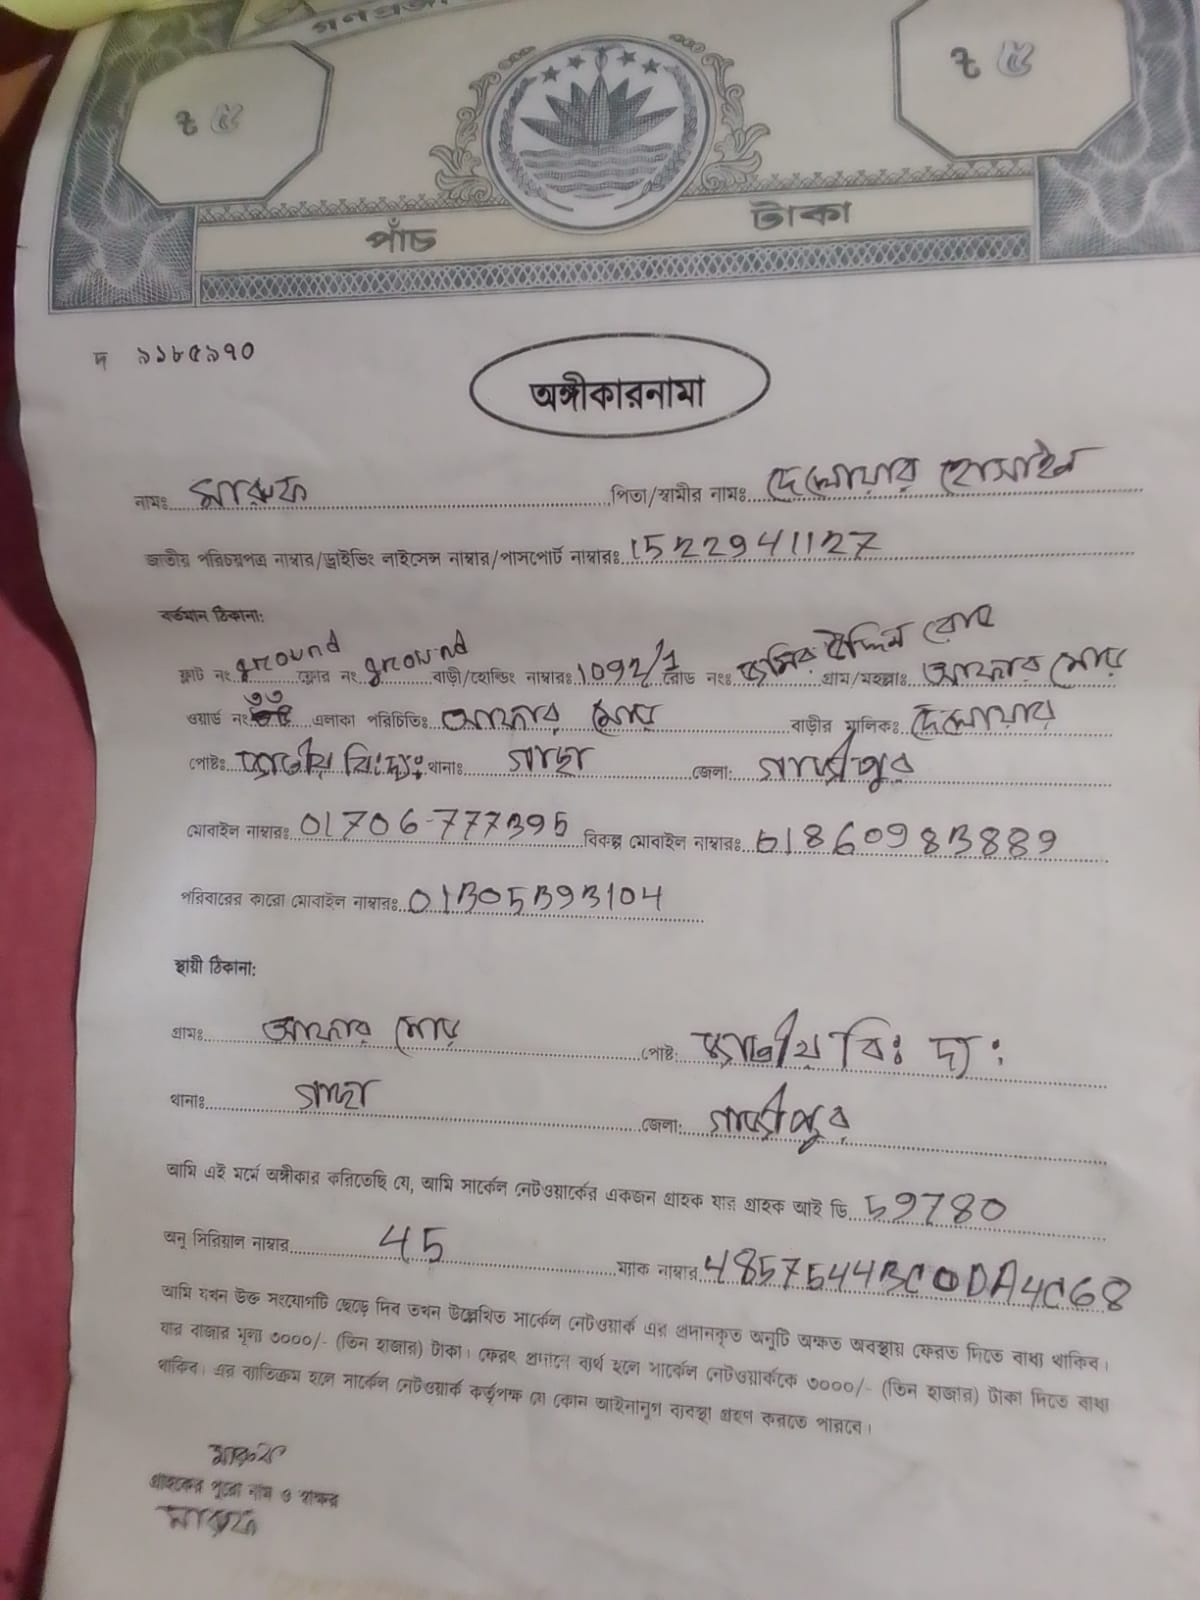 গণপ্রজা
৳ ৫ ৳ ৫
পাঁচ টাকা
দ ৯১৮৫৯৭০
অঙ্গীকারনামা
নামঃ মারুফ পিতা/স্বামীর নামঃ দেলোয়ার হোসাইন
জাতীয় পরিচয়পত্র নাম্বার/ড্রাইভিং লাইসেন্স নাম্বার/পাসপোর্ট নাম্বারঃ 1522941127
বর্তমান ঠিকানা:
ফ্লাট নং ground ফ্লোর নং ground বাড়ী/হোল্ডিং নাম্বারঃ 1092/1 রোড নংঃ জসির উদ্দিন রোড গ্রাম/মহল্লাঃ আফার মোড়
ওয়ার্ড নং ৩৩ এলাকা পরিচিতিঃ আফার মোড় বাড়ীর মালিকঃ দেলোয়ার
পোষ্টঃ জাতীয় বিঃদ্যঃ থানাঃ গাছা জেলা: গাজীপুর
মোবাইল নাম্বারঃ 01706-777395 বিকল্প মোবাইল নাম্বারঃ 01860983889
পরিবারের কারো মোবাইল নাম্বারঃ 01305393104
স্থায়ী ঠিকানা:
গ্রামঃ আফার মোড় পোষ্ট: জাতীয় বিঃ দ্য:
থানাঃ গাছা জেলা: গাজীপুর
আমি এই মর্মে অঙ্গীকার করিতেছি যে, আমি সার্কেল নেটওয়ার্কের একজন গ্রাহক যার গ্রাহক আই ডি 59780
অনু সিরিয়াল নাম্বার 45 ম্যাক নাম্বার 48575443C0DA4C68
আমি যখন উক্ত সংযোগটি ছেড়ে দিব তখন উল্লেখিত সার্কেল নেটওয়ার্ক এর প্রদানকৃত অনুটি অক্ষত অবস্থায় ফেরত দিতে বাধ্য থাকিব।
যার বাজার মূল্য ৩০০০/- (তিন হাজার) টাকা। ফেরৎ প্রদানে ব্যর্থ হলে সার্কেল নেটওয়ার্ককে ৩০০০/- (তিন হাজার) টাকা দিতে বাধ্য
থাকিব। এর ব্যাতিক্রম হলে সার্কেল নেটওয়ার্ক কর্তৃপক্ষ যে কোন আইনানুগ ব্যবস্থা গ্রহণ করতে পারবে।
মারুফ
গ্রাহকের পুরো নাম ও স্বাক্ষর
মারুফ